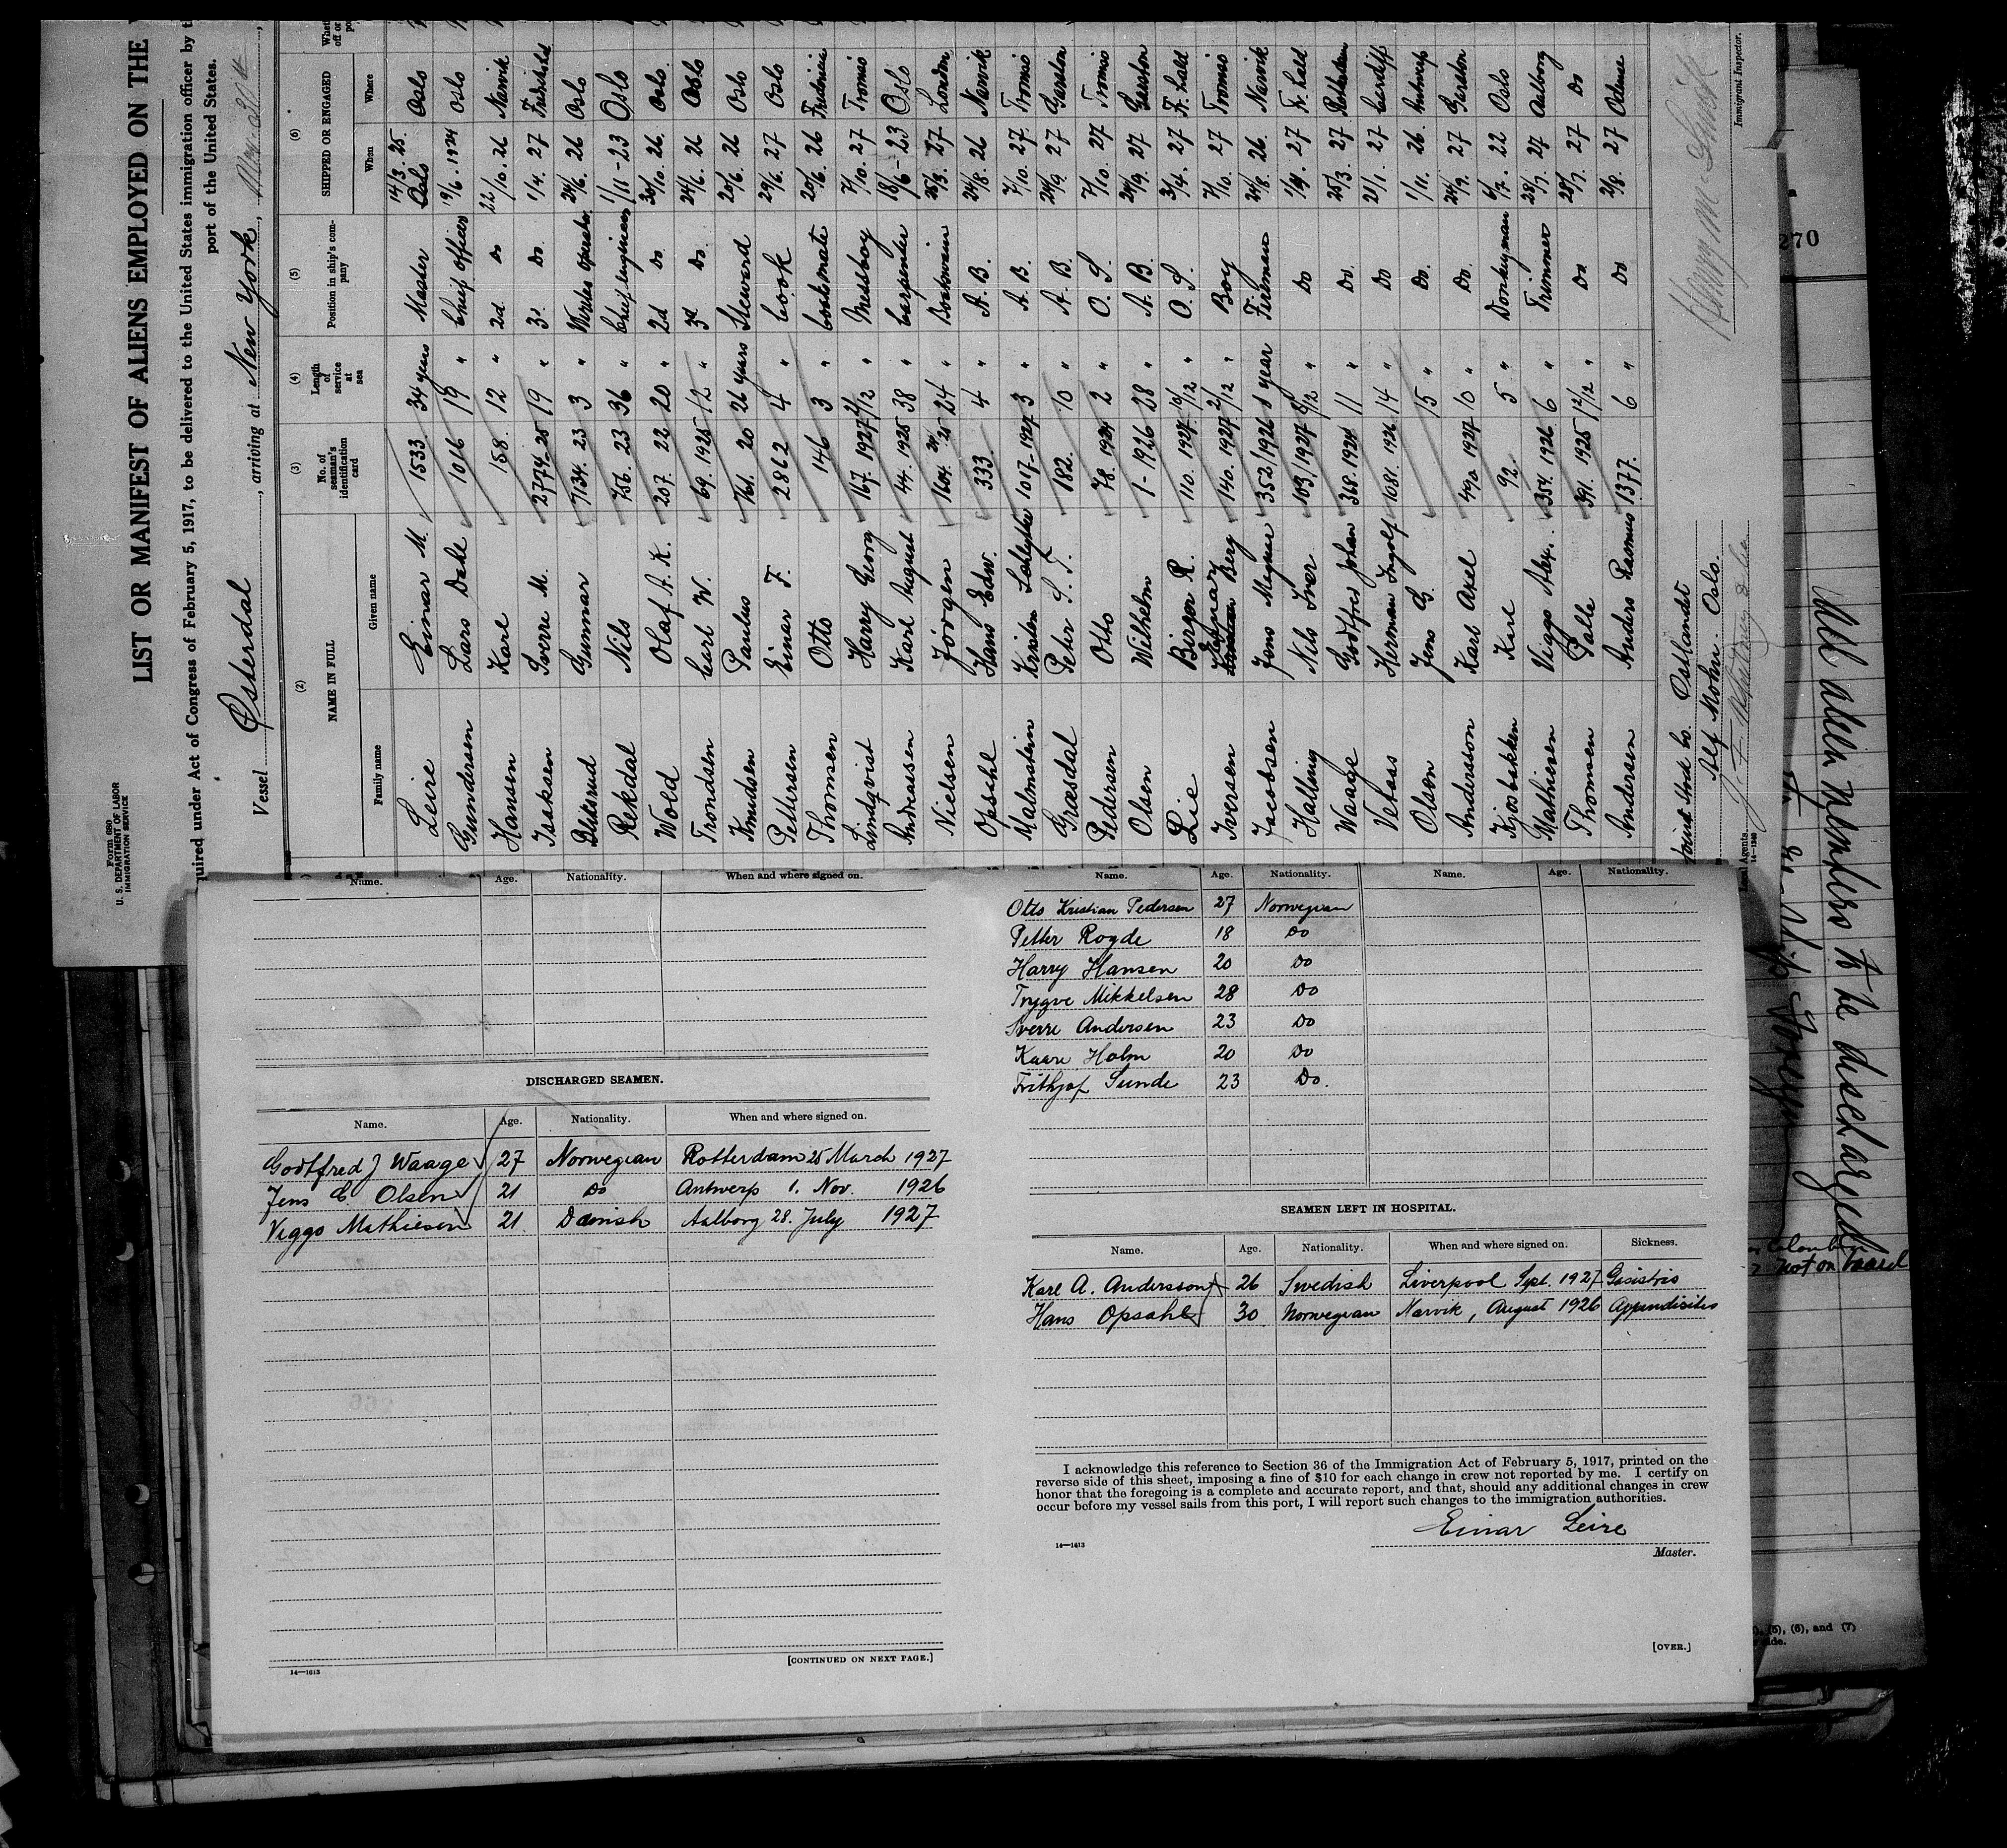 Form 680
U. S. DEPARTMENT OF LABOR
IMMIGRATION SERVICE
LIST OR MANIFEST OF ALIENS EMPLOYED ON THE
quired under Act of Congress of February 5, 1917, to be delivered to the United States immigration officer by t
port of the United States.
Vessel Østerdal, arriving at New York,
(2) (3) (4) (5) (6)
NAME IN FULL No. of seaman's identification card Length of service at sea Position in ship's company SHIPPED OR ENGAGED
Family name Given name When Where
Leire Einar M. 1533 34 years Master 14/3. 25. Oslo
Gundersen Lars Dahl 1016 19 " Chief officer 19/6. 1924 Oslo
Hansen Karl 158. 12 " 2d Do 22/10. 26 Narvik
Isaksen Sverre M. 2774-25 19 " 3d Do. 1/4. 27
Gunnar 7134. 23 3 " 24/6. 26 Oslo
Rekdal Nils 756. 23 36 " Chief engineer 1/11-23 Oslo
Wold Olaf A. K. 207. 22 20 " 2d Do 30/10. 26. Oslo.
Trondsen Carl W. 69. 1925 12 " 3d Do. 24/6. 26 Oslo
Knudsen Paulus 761. 20 26 years Steward 20/6. 26 Oslo
Pettersen Einar F. 2862 4 " Cook 29/6. 27 Oslo
Thomsen Otto 146 3 " 20/6. 26 Fredericia
Lindqvist Harry Georg 167. 1927 2/12 " Messboy 7/10. 27 Tromsø
Andreassen Karl August 44. 1925 38 " Carpenter 18/6-23 Oslo
Nielsen Jørgen 1604. 25 24 " Boatswain 25/3. 27 London
Opsahl Hans Edw. 333 4 " A. B. 24/8. 26 Narvik
Malmstein Kristen 107-1927 3 " A. B. 7/10. 27. Tromsø
Græsdal Peter S. T. 182. 10 " A. B. 24/9. 27 Garston
Pedersen Otto 78. 1924 2 " O. S. 7/10. 27 Tromsø
Olsen Wilhelm 1-1926 28 " A. B. 24/9. 27 Garston
Lie Birger R. 110. 1927. 10/12 " O. S. 3/4. 27 F. hald
Iversen Berg 140. 1927 2/12 " Boy 7/10. 27 Tromsø
Jacobsen Jens Magnus 352/1926 8 year Fireman 24/8. 26. Narvik
Halling Nils Iver 103/1927 8/12 " Do 1/4. 27 Fr. hald
Waage Godtfred Johan 368. 1924 11 " Do. 25/3. 27 Rotterdam
Vetaas Herman Ingolf 108. 1926 14 " Do 21/1. 27 Cardiff
Olsen Jens G. 15 " Do. 1/11. 26. Antwerp
Andersson Karl Axel 490 1927 10 " Do. 24/9. 27 Garston
Kjosbakken Kare 92. 5 " Donkeyman 6/7. 22 Oslo
Mathiesen Viggo Alex. 354. 1926 6 " Trimmer 28/7. 27 Aalborg
Thomsen Palle 391. 1925 1 2/12 " Do 28/7. 27 Do
Andersen Anders Rasmus 1377. 6 " Do 2/8. 27 Odense
Østlandet
Alf Mohn. Oslo.
Immigrant Inspector.
14—1240
270
All alien members to be discharged
not on board
Name. Age. Nationality. When and where signed on.
DISCHARGED SEAMEN.
Name. Age. Nationality. When and where signed on.
Godtfred J Waage 27 Norwegian Rotterdam 25 March 1927
Jens G Olsen 21 Do Antwerp 1. Nov. 1926
Viggo Mathiesen 21. Danish Aalborg 28. July 1927
14—1613
[CONTINUED ON NEXT PAGE.]
Name. Age. Nationality. Name. Age. Nationality.
Otto Kristian Pedersen 27 Norwegian
Petter Rogde 18 Do
Harry Hansen 20 Do
Trygve Mikkelsen 28 Do
Sverre Andersen 23 Do
Kaare Holm 20 Do
Frithjof Sunde 23 Do.
SEAMEN LEFT IN HOSPITAL.
Name. Age. Nationality. When and where signed on. Sickness.
Karl A. Andersson 26 Swedish Liverpool Sept. 1927 Gasistris
Hans Opsahl 30 Norwegian Narvik, August 1926 Appendisites
I acknowledge this reference to Section 36 of the Immigration Act of February 5, 1917, printed on the
reverse side of this sheet, imposing a fine of $10 for each change in crew not reported by me. I certify on
honor that the foregoing is a complete and accurate report, and that, should any additional changes in crew
occur before my vessel sails from this port, I will report such changes to the immigration authorities.
Einar Leire
14—1613
Master.
[OVER.]
(5), (6), and (7)
side.